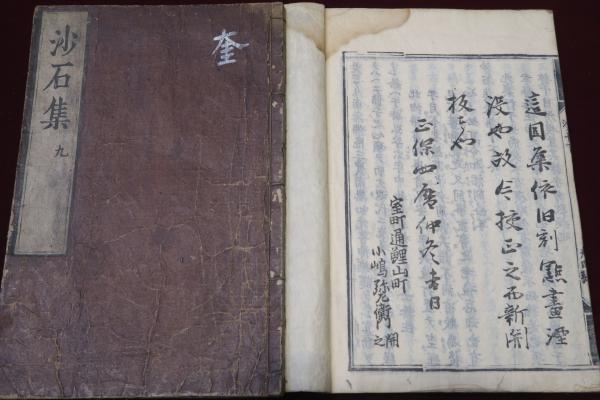 沙石集 九
奎
這因集依旧刻點畫湮
没也故令挍正之而新開
板者也
正保四暦仲冬吉日
室町通鯉山町
小嶋弥左衛門開之